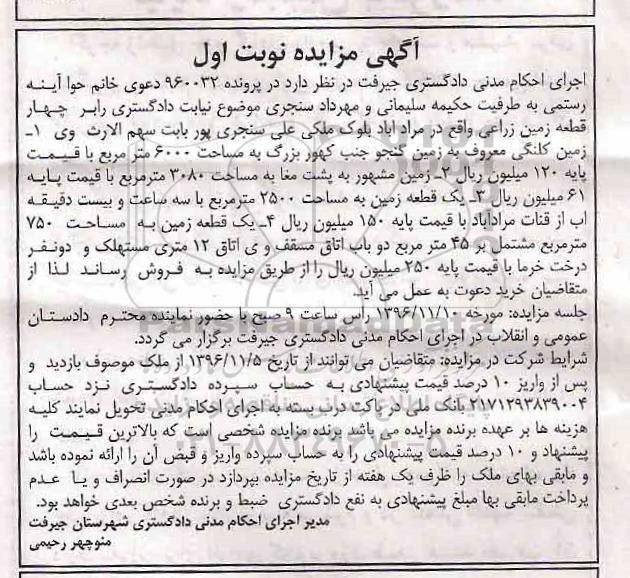 آگهی مزایده نوبت اول
اجرای احکام مدنی دادگستری جیرفت در نظر دارد در پرونده ۹۶۰۰۳۲ دعوی خانم حوا آینه
رستمی به طرفیت حکیمه سلیمانی و مهرداد سنجری موضوع نیابت دادگستری رابر چهار
قطعه زمین زراعی واقع در مراد اباد بلوک ملکی علی سنجری پور بابت سهم الارث وی ۱ـ
زمین کلنگی معروف به زمین گنجو جنب کهور بزرگ به مساحت ۶۰۰۰ متر مربع با قیمت
پایه ۱۲۰ میلیون ریال ۲ـ زمین مشهور به پشت مغا به مساحت ۳۰۸۰ مترمربع با قیمت پایه
۶۱ میلیون ریال ۳ـ یک قطعه زمین به مساحت ۲۵۰۰ مترمربع با سه ساعت و بیست دقیقه
اب از قنات مرادآباد با قیمت پایه ۱۵۰ میلیون ریال ۴ـ یک قطعه زمین به مساحت ۷۵۰
مترمربع مشتمل بر ۴۵ متر مربع دو باب اتاق مسقف و ی اتاق ۱۲ متری مستهلک و دونفر
درخت خرما با قیمت پایه ۲۵۰ میلیون ریال را از طریق مزایده به فروش رساند لذا از
متقاضیان خرید دعوت به عمل می آید.
جلسه مزایده: مورخه ۱۳۹۶/۱۱/۱۰ راس ساعت ۹ صبح با حضور نماینده محترم دادستان
عمومی و انقلاب در اجرای احکام مدنی دادگستری جیرفت برگزار می گردد.
شرایط شرکت در مزایده: متقاضیان می توانند از تاریخ ۱۳۹۶/۱۱/۵ از ملک موصوف بازدید و
پس از واریز ۱۰ درصد قیمت پیشنهادی به حساب سپرده دادگستری نزد حساب
۲۱۷۱۲۹۳۸۳۹۰۰۴ بانک ملی در پاکت درب بسته به اجرای احکام مدنی تحویل نمایند کلیه
هزینه ها بر عهده برنده مزایده می باشد برنده مزایده شخصی است که بالاترین قیمت را
پیشنهاد و ۱۰ درصد قیمت پیشنهادی را به حساب سپرده واریز و قبض آن را ارائه نموده باشد
و مابقی بهای ملک را ظرف یک هفته از تاریخ مزایده بپردازد در صورت انصراف و یا عدم
پرداخت مابقی بها مبلغ پیشنهادی به نفع دادگستری ضبط و برنده شخص بعدی خواهد بود.
مدیر اجرای احکام مدنی دادگستری شهرستان جیرفت
منوچهر رحیمی